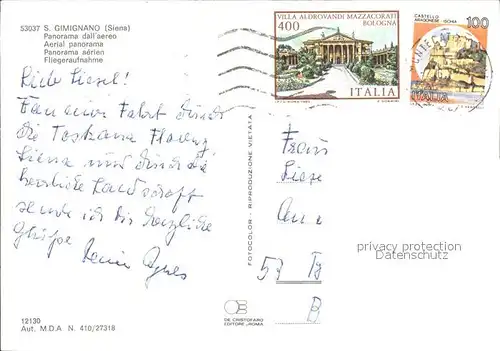 53037 S. GIMIGNANO (Siena)
Panorama dall'aereo
Aerial panorama
Panorama aérien
Fliegeraufnahme
VILLA ALDROVANDI MAZZACORATI
BOLOGNA
400
ITALIA
CASTELLO
ARAGONESE - ISCHIA
100
ITALIA
Liebe Liesel!
Von einer Fahrt durch
die Toskana Florenz
Siena und durch die
herrliche Landschaft
sende ich dir herzliche
Grüße
Deine Agnes
FOTOCOLOR - RIPRODUZIONE VIETATA
Frau
Liese
53
B
privacy protection
Datenschutz
DE CRISTOFARO
EDITORE - ROMA
12130
Aut. M.D.A N. 410/27318